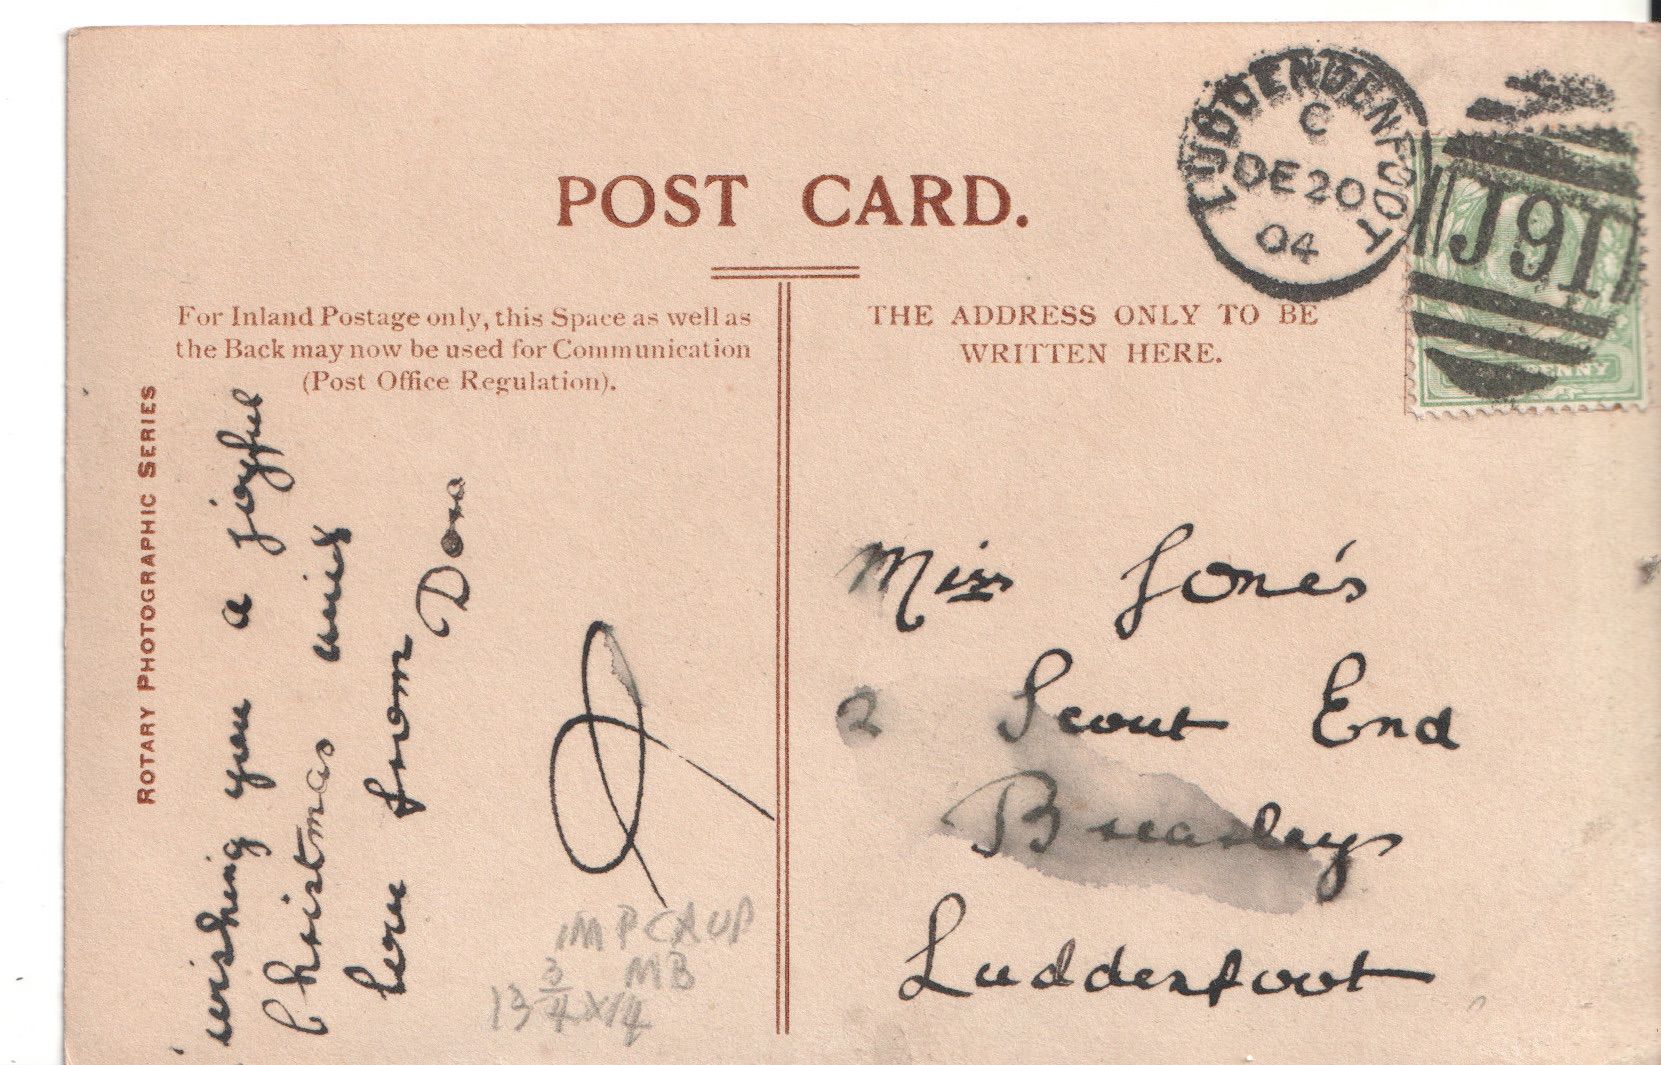 POST CARD.
For Inland Postage only, this Space as well as
the Back may now be used for Communication
(Post Office Regulation).
THE ADDRESS ONLY TO BE
WRITTEN HERE.
LUDDENDENFOOT
C
DE 20
04
J91
PENNY
ROTARY PHOTOGRAPHIC SERIES
wishing you a joyful
Christmas
from
Dora
Miss Jone's
2 Scout End
Brearley
Luddenfoot
IMP CA UP
MB
13 3/4 x 14